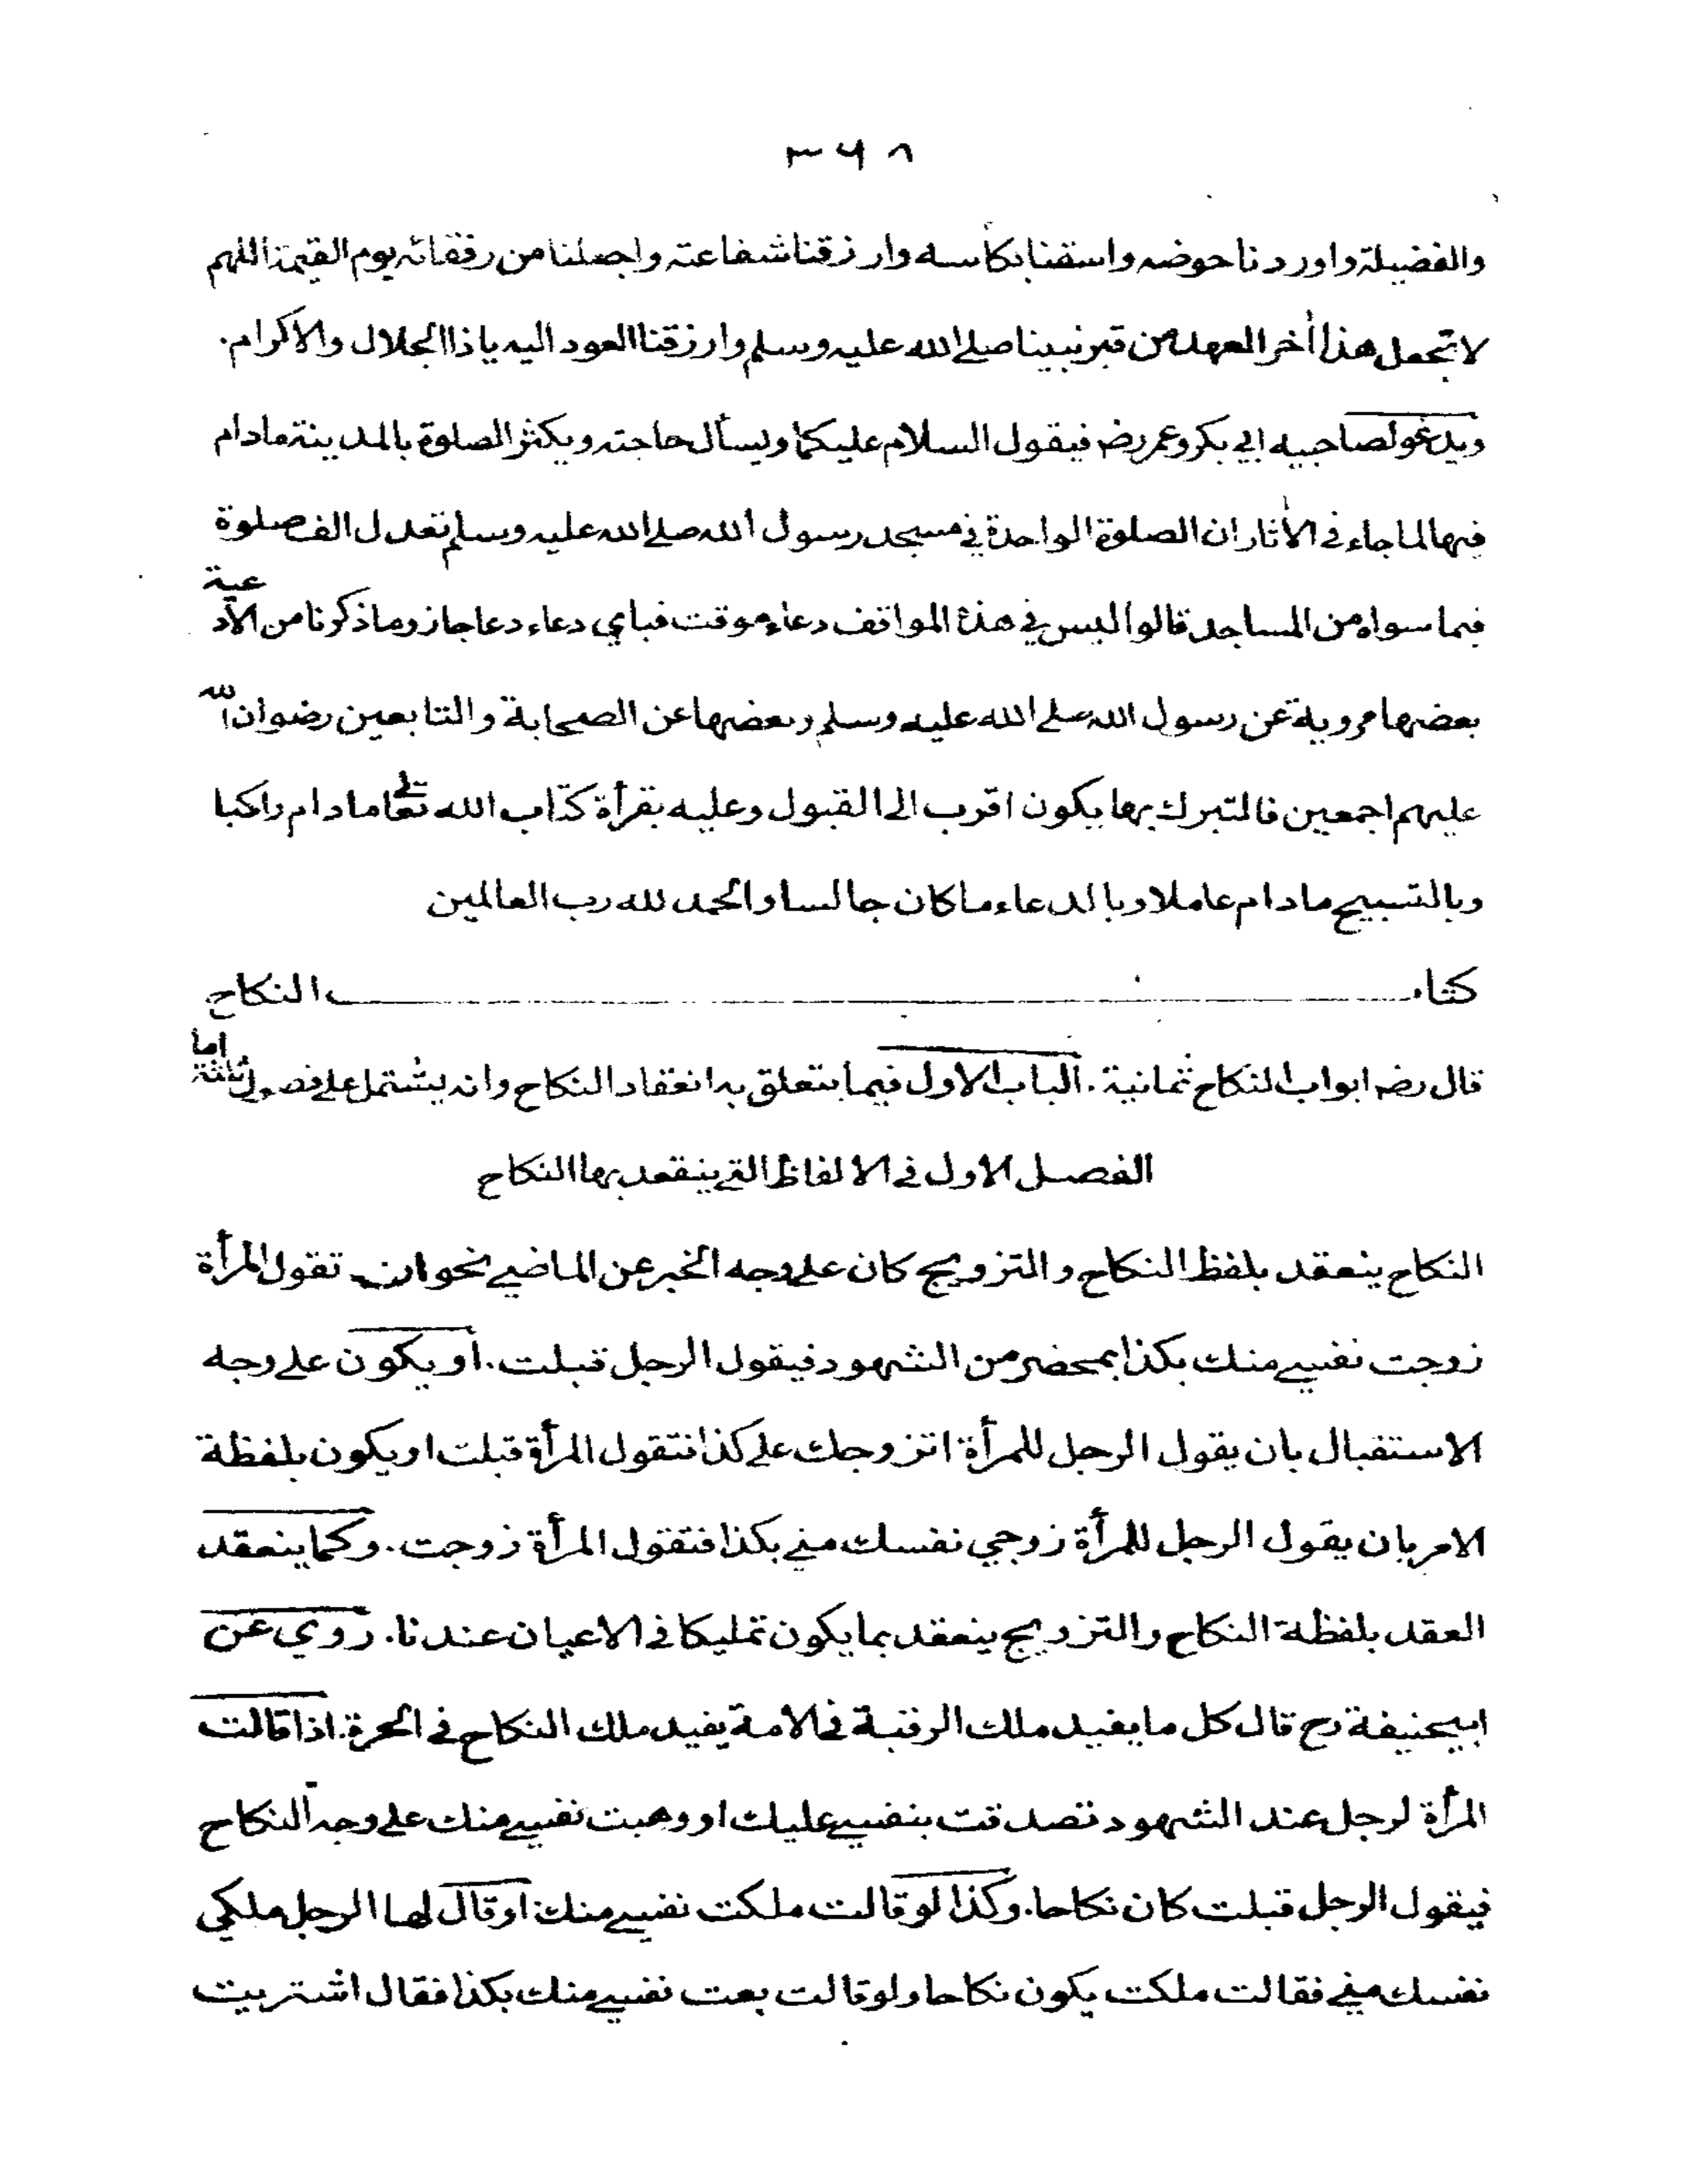 ٣٦٨
والفضيلة واوردنا حوضه واسقنا بكأسه وارزقنا شفاعته واجعلنا من رفقائه يوم القيمة اللهم
لا تجعل هذا أخر العهد من قبر نبينا صلى الله عليه وسلم وارزقنا العود اليه ياذا الجلال والاكرام.
ويدعو لصاحبيه ابي بكر وعمر رضـ فيقول السلام عليكما ويسأل حاجته ويكثر الصلوة بالمدينة مادام
فيها لما جاء في الأثار ان الصلوة الواحدة في مسجد رسول الله صلى الله عليه وسلم تعدل الف صلوة
فيما سواه من المساجد قالوا ليس في هذه المواقف دعاء موقت فباي دعاء دعا جاز وما ذكرنا من الأدعية
بعضها مروية عن رسول الله صلى الله عليه وسلم وبعضها عن الصحابة والتابعين رضوان الله
عليهم اجمعين فالتبرك بها يكون اقرب الى القبول وعليه بقرأة كتاب الله تعالى مادام راكبا
وبالتسبيح مادام عاملا وبالدعاء ما كان جالسا والحمد لله رب العالمين
كتاب النكاح
قال رضـ ابواب النكاح ثمانية. الباب الاول فيما يتعلق به انعقاد النكاح وانه يشتمل على فصول ثلثة اما
الفصل الاول في الالفاظ التي ينعقد بها النكاح
النكاح ينعقد بلفظ النكاح والتزويج كان على وجه الخبر عن الماضي نحو ان تقول المرأة
زوجت نفسي منك بكذا بمحضر من الشهود فيقول الرجل قبلت. او يكون على وجه
الاستقبال بان يقول الرجل للمرأة اتزوجك على كذا فتقول المرأة قبلت او يكون بلفظة
الامر بان يقول الرجل للمرأة زوجي نفسك مني بكذا فتقول المرأة زوجت. وكما ينعقد
العقد بلفظة النكاح والتزويج ينعقد بما يكون تمليكا في الاعيان عندنا. روي عن
ابيحنيفة رح قال كل ما يفيد ملك الرقبة في الامة يفيد ملك النكاح في الحرة. اذا قالت
المرأة لرجل عند الشهود تصدقت بنفسي عليك او وهبت نفسي منك على وجه النكاح
فيقول الرجل قبلت كان نكاحا. وكذا لو قالت ملكت نفسي منك او قال لها الرجل ملكي
نفسك مني فقالت ملكت يكون نكاحا ولو قالت بعت نفسي منك بكذا فقال اشتريت